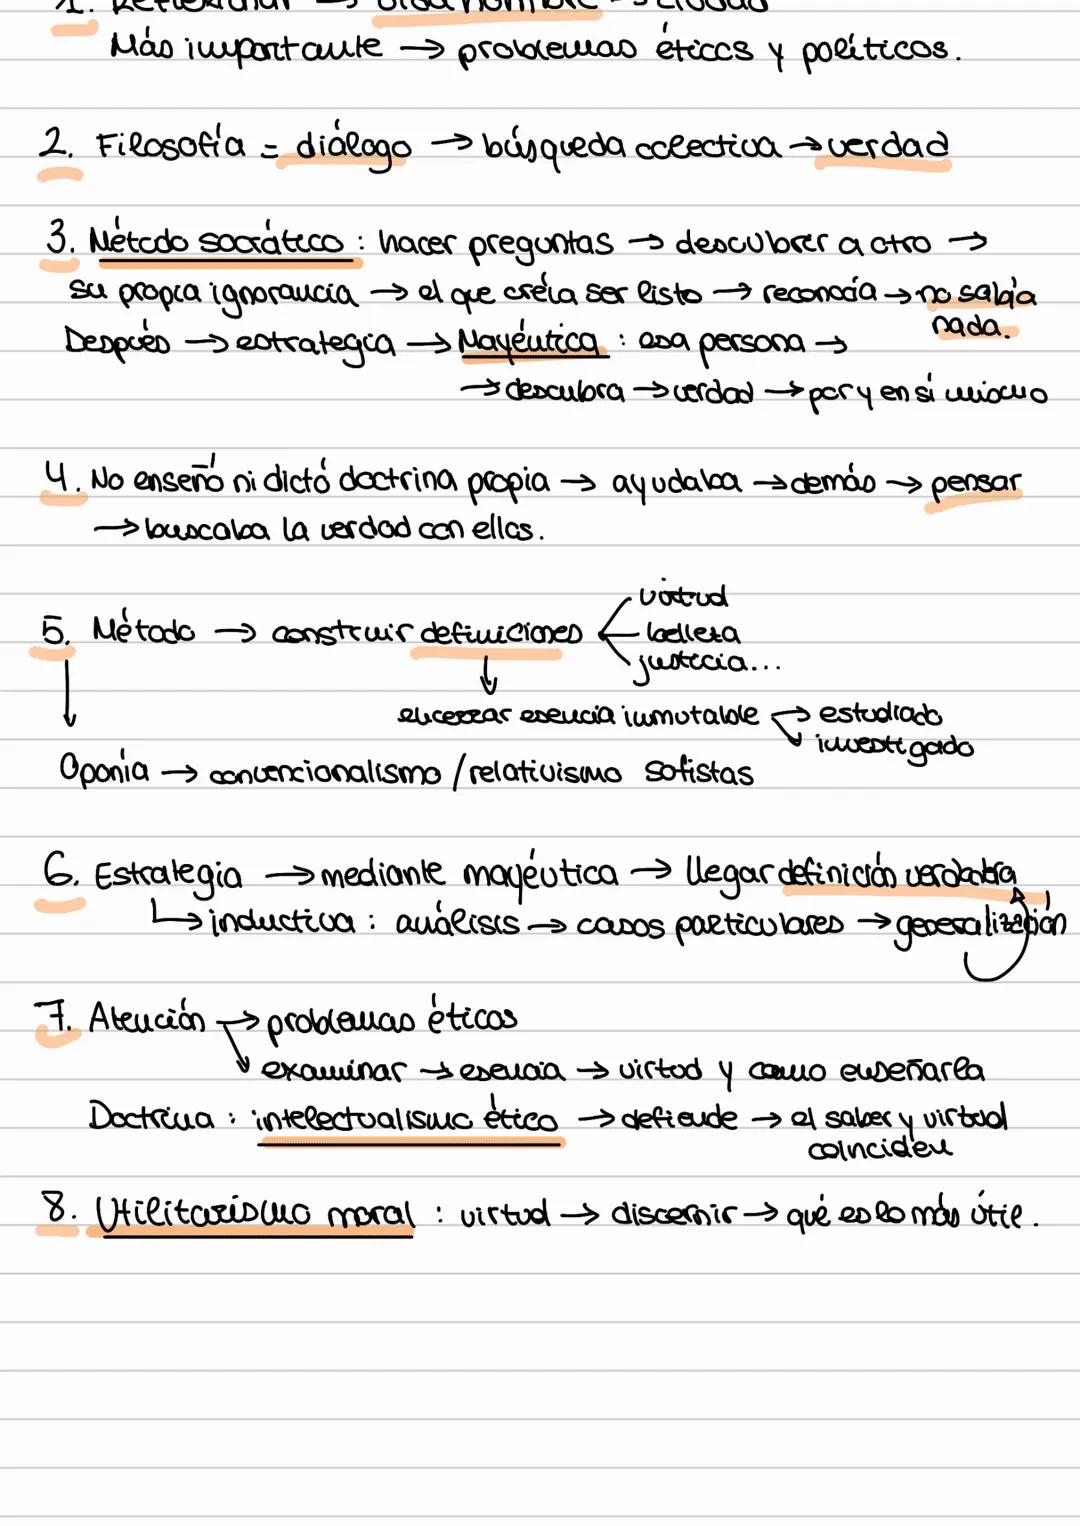 1. Reflexionar → vida hombre → ciudad
Más importante → problemas éticos y políticos.
2. Filosofía = diálogo → búsqueda colectiva → verdad
3. Método socrático : hacer preguntas → descubrir a otro →
su propia ignorancia → el que creía ser listo → reconocía → no sabía
nada.
Después → estrategia → Mayéutica : esa persona →
→ descubra → verdad → por y en sí mismo
4. No enseñó ni dictó doctrina propia → ayudaba → demás → pensar
→ buscaba la verdad con ellos.
virtud
5. Método → construir definiciones belleza
justicia...
↓ encerrar esencia inmutable → estudiado
investigado
Oponía → convencionalismo / relativismo sofistas
6. Estrategia → mediante mayéutica → llegar definición verdadera
↳ inductiva : análisis → casos particulares → generalización
7. Atención → problemas éticos
examinar → esencia → virtud y como enseñarla
Doctrina : intelectualismo ético → defiende → el saber y virtud
coinciden
8. Utilitarismo moral : virtud → discernir → qué es lo más útil.